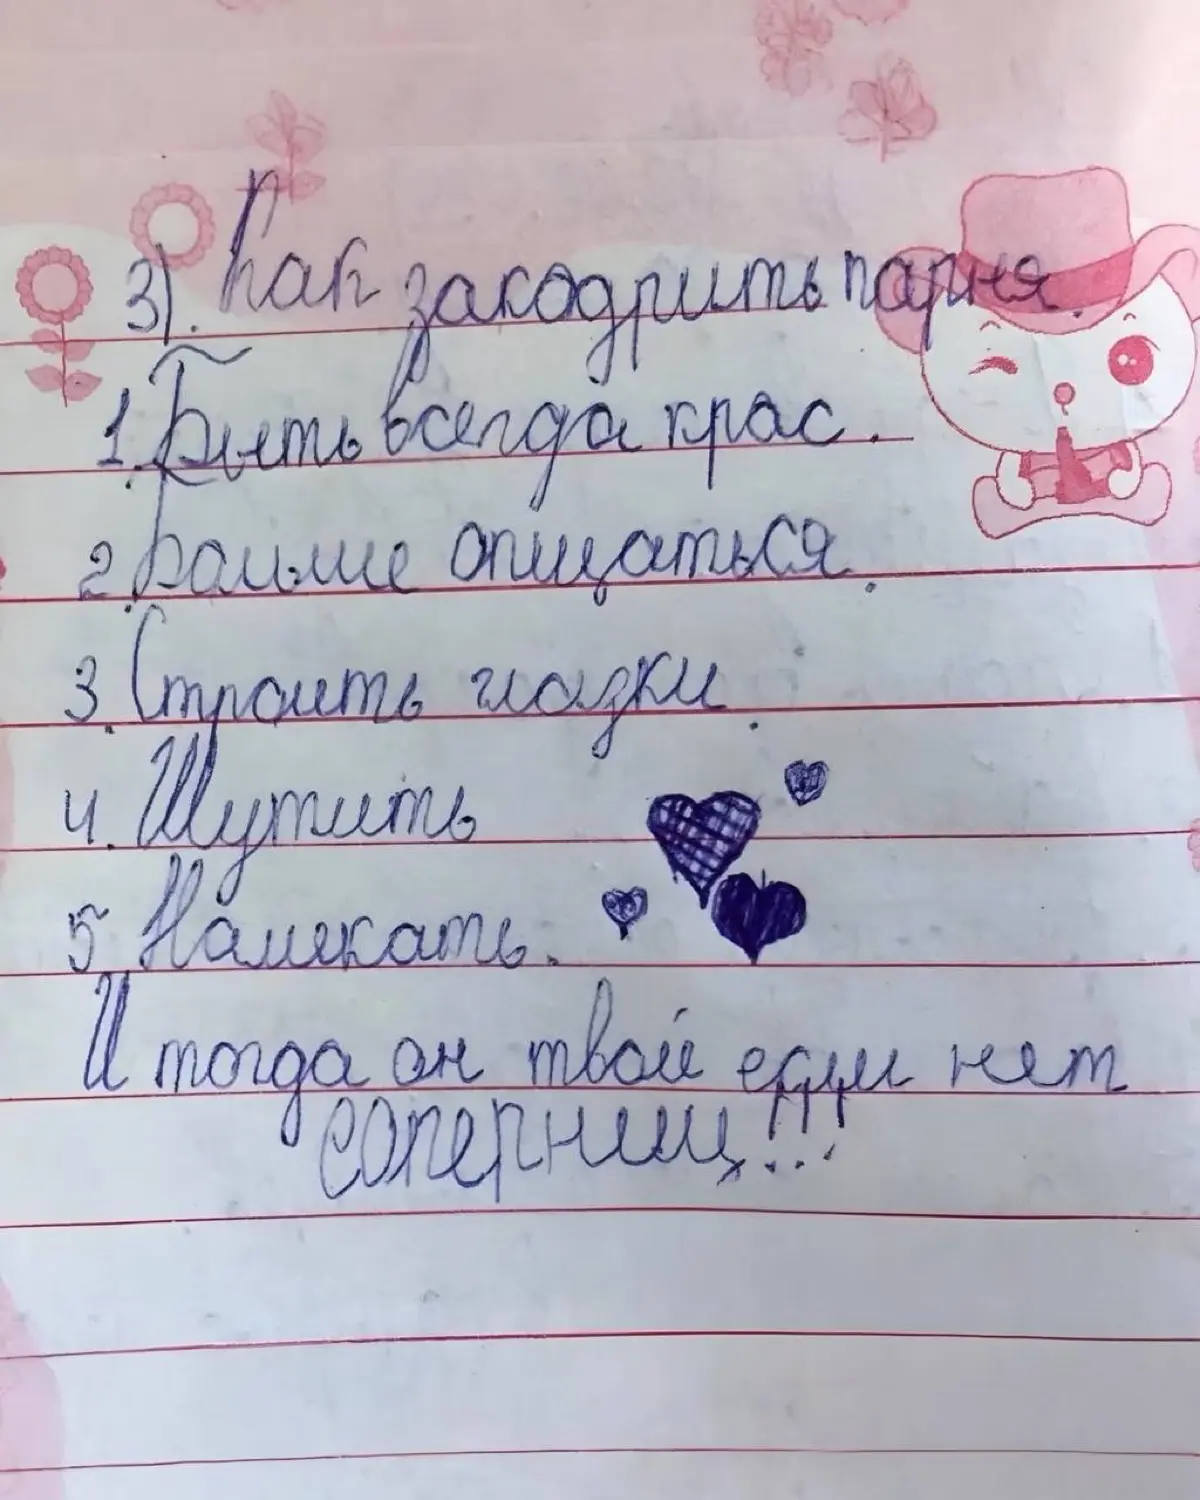 3). Как закадрить парня.
1. Быть всегда крас.
2. Больше опщаться.
3. Строить глазки.
4. Шутить
5 Намекать.
И тогда он твой если нет
соперниц!!!